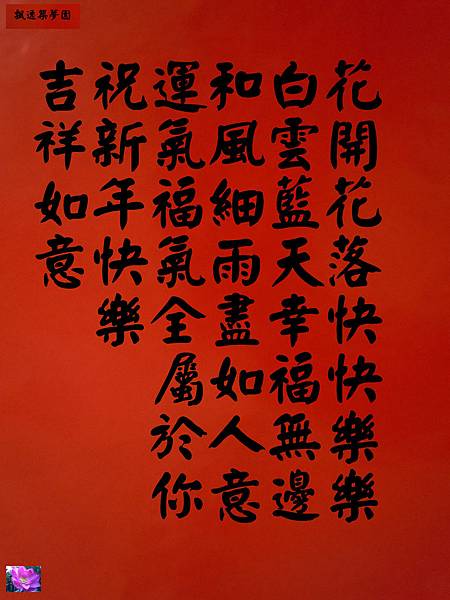 飄逸築夢園
花開花落快快樂樂
白雲藍天幸福無邊
和風細雨盡如人意
運氣福氣全屬於你
祝新年快樂
吉祥如意